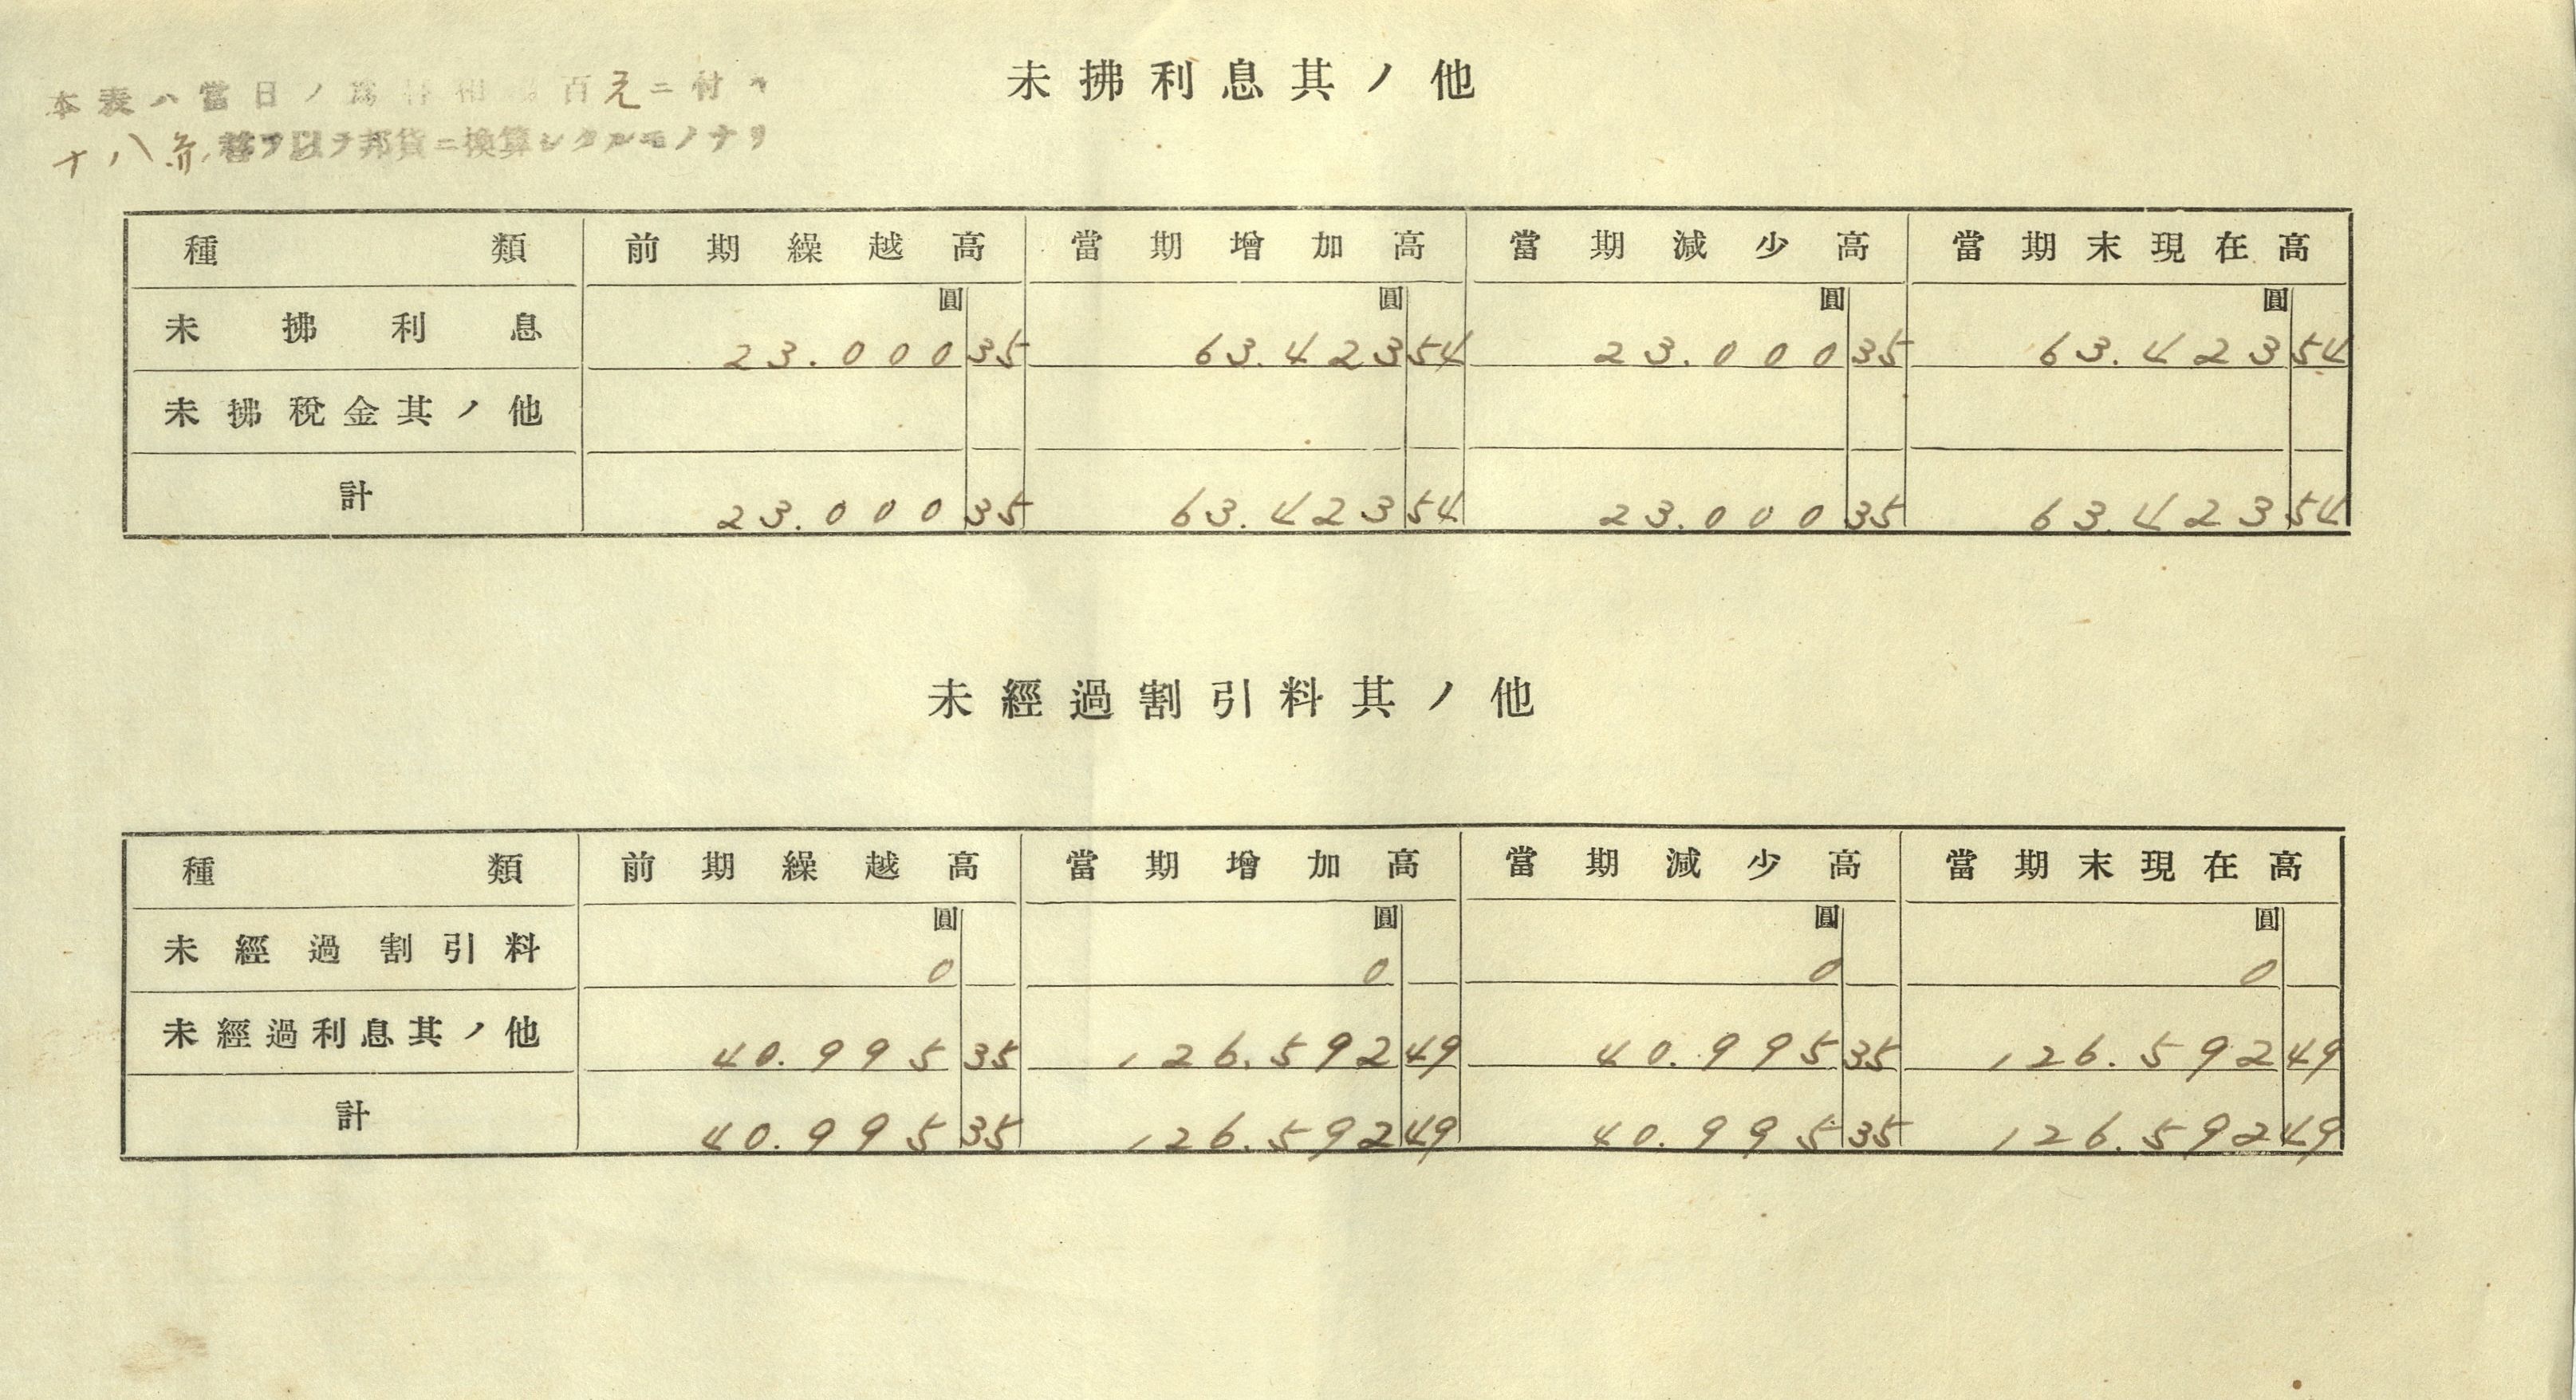 未拂利息其ノ他
本表ハ當日ノ爲替相 百元ニ付
十八弗替ヲ以テ邦貨ニ換算シタルモノナリ
種類 前期繰越高 當期增加高 當期減少高 當期末現在高
圓 圓 圓 圓
未拂利息 23.000 35 63.423 54 23.000 35 63.423 54
未拂稅金其ノ他
計 23.000 35 63.423 54 23.000 35 63.423 54
未經過割引料其ノ他
種類 前期繰越高 當期增加高 當期減少高 當期末現在高
圓 圓 圓 圓
未經過割引料 0 0 0 0
未經過利息其ノ他 40.995 35 126.592 49 40.995 35 126.592 49
計 40.995 35 126.592 49 40.995 35 126.592 49